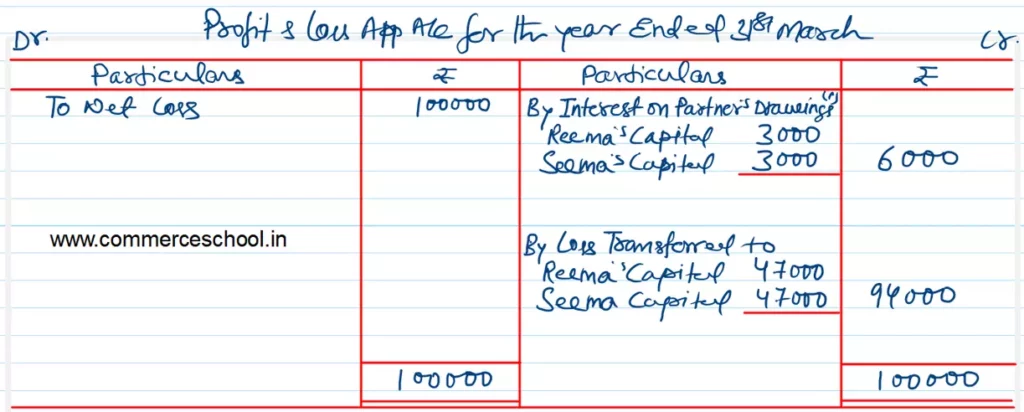 Profit & Loss App A/c for the year Ended 31st March
Dr. Cr.
Particulars ₹ Particulars ₹
To Net Loss 100000 By Interest on Partner's Drawings
Reema's Capital 3000
Seema's Capital 3000 6000
www.commerceschool.in
By Loss Transferred to
Reema's Capital 47000
Seema Capital 47000 94000
100000 100000